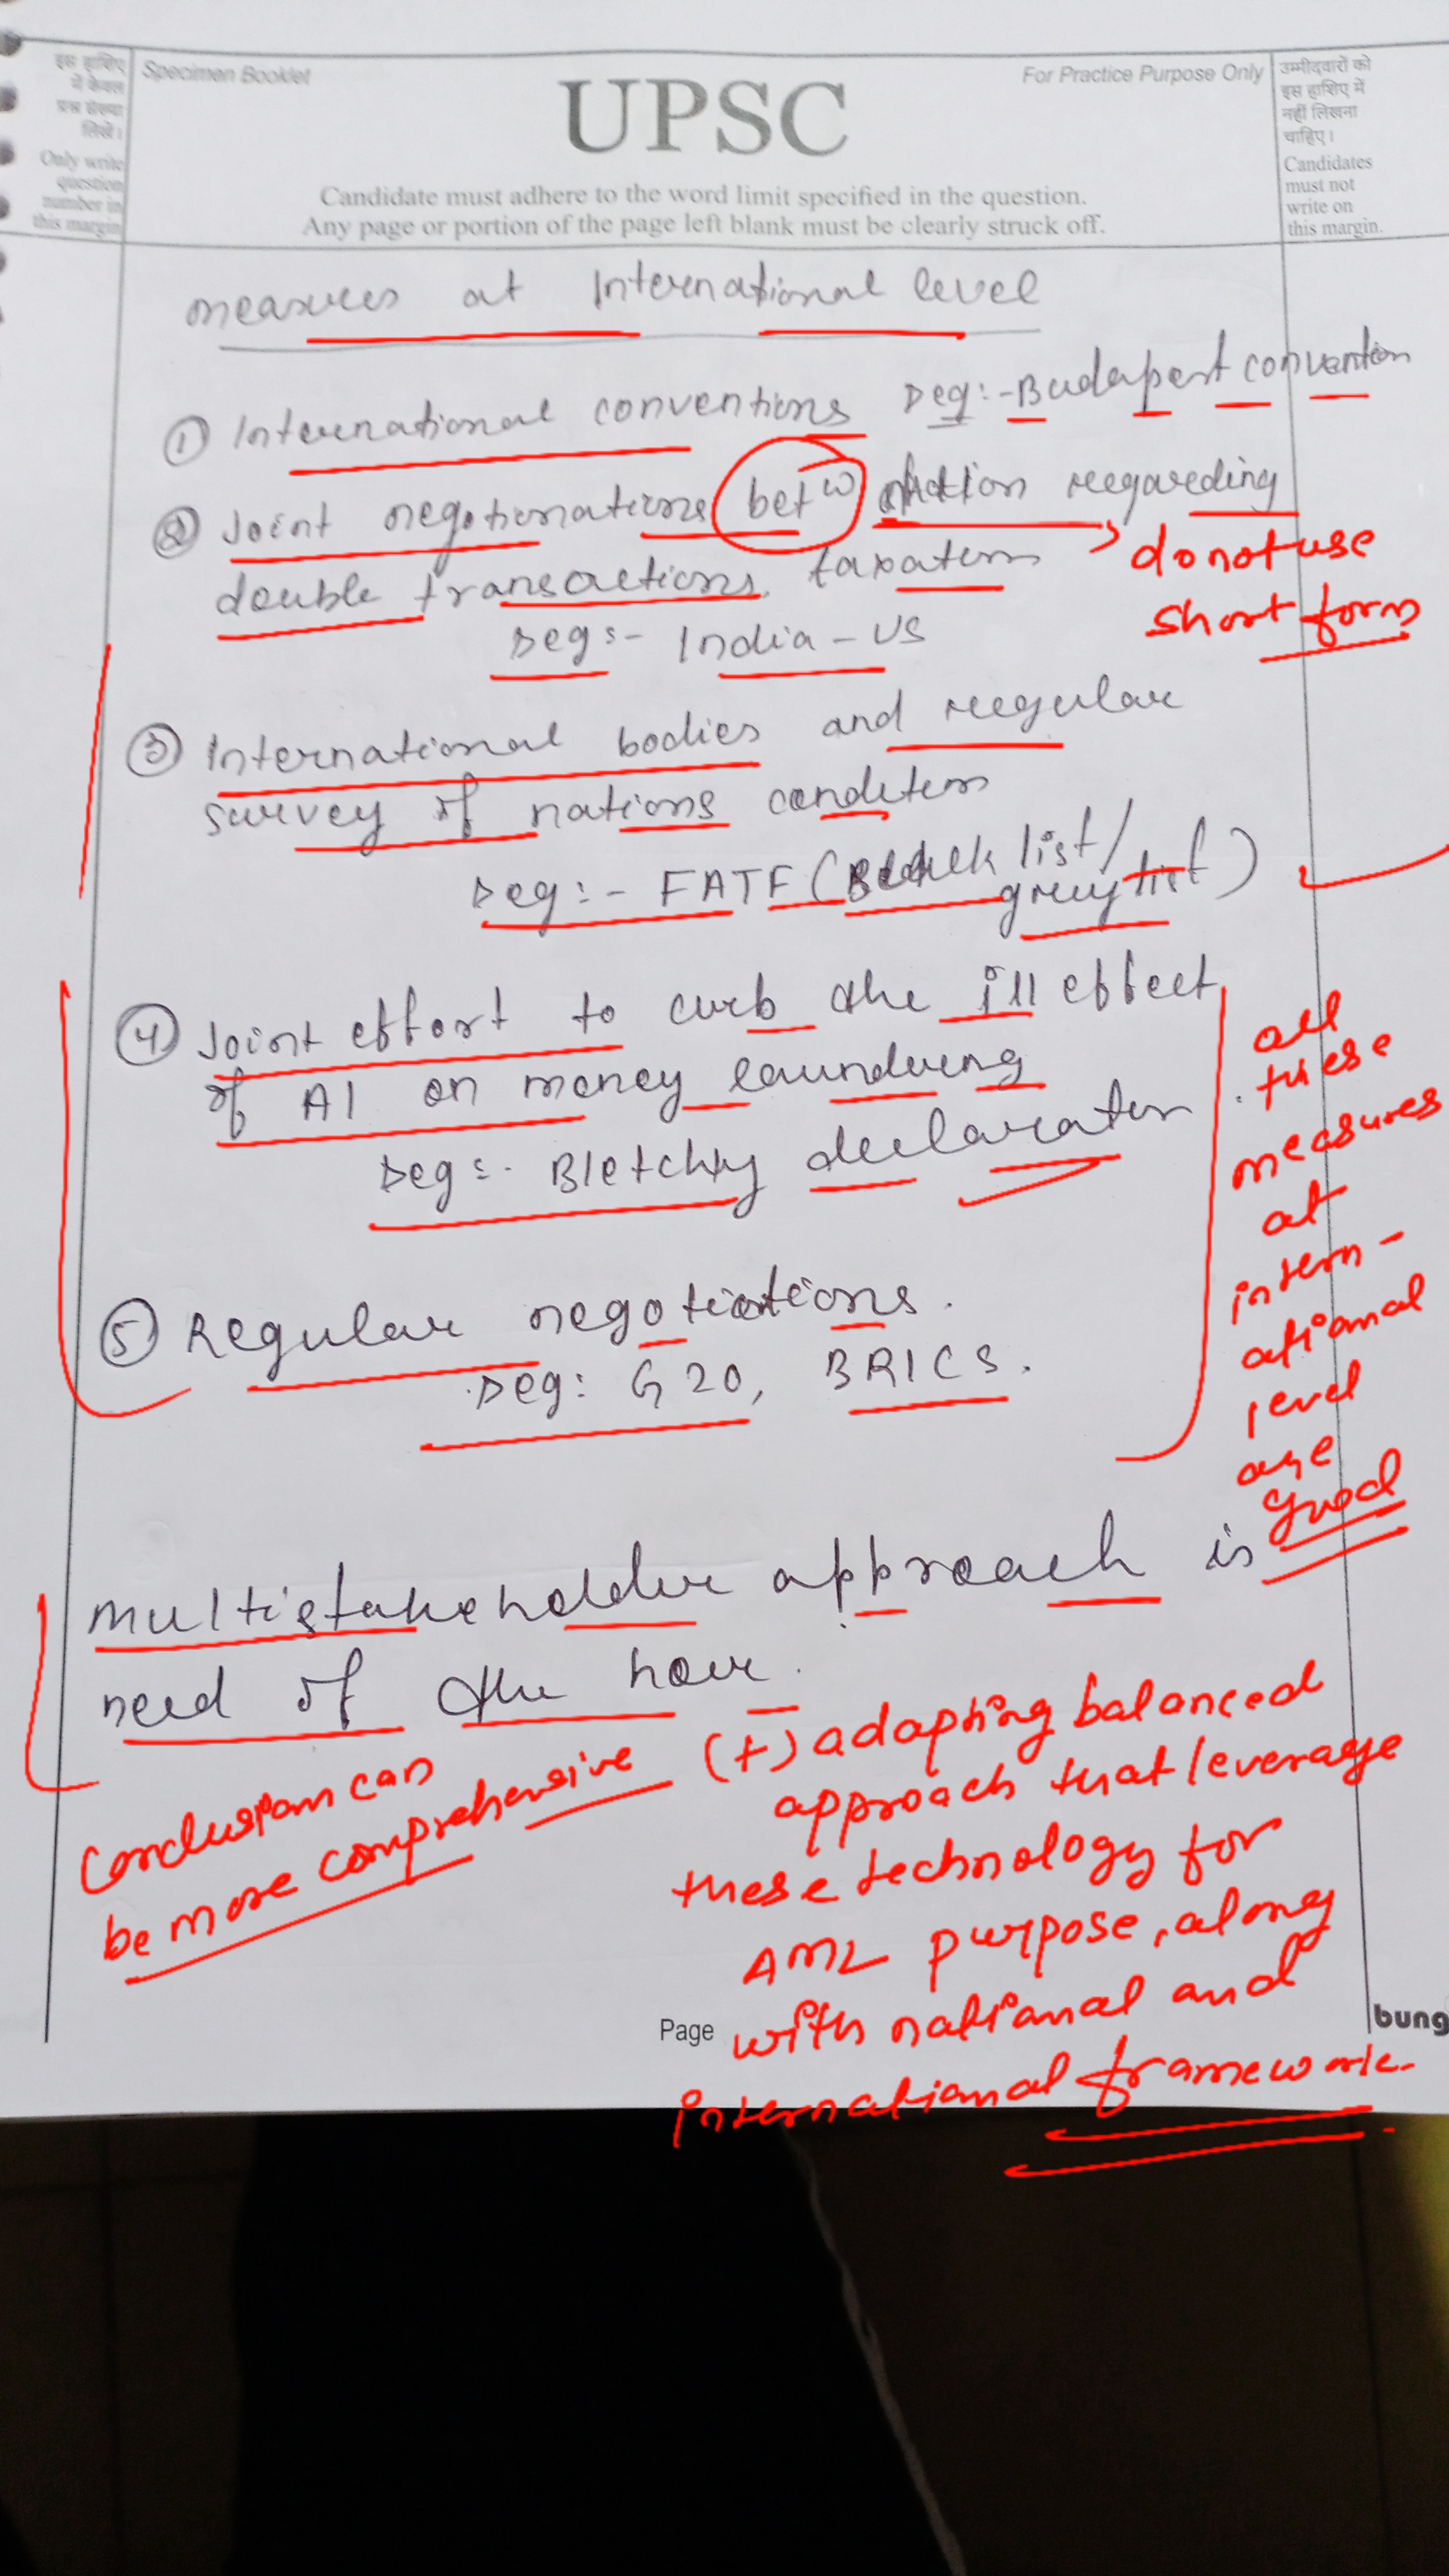 इस हाशिए
में केवल
प्रश्न संख्या
लिखें।
Only write
question
number in
this margin
Specimen Booklet
UPSC
For Practice Purpose Only
Candidate must adhere to the word limit specified in the question.
Any page or portion of the page left blank must be clearly struck off.
उम्मीदवारों को
इस हाशिए में
नहीं लिखना
चाहिए।
Candidates
must not
write on
this margin.
measures at International level
① International conventions eg:- Budapest convention
② Joint negotionations betw nation regarding
double transactions, taxation
eg:- India - US
do not use
short form
③ International bodies and regular
survey of nations condition
eg:- FATF (Black list/
grey list)
④ Joint effort to curb the ill effect
of AI on money laundering
eg:- Bletchly declaration
⑤ Regular negotiations.
eg: G20, BRICS.
all
these
measures
at
intern-
ational
level
are
good
Multistakeholder approach is
need of the hour.
Conclusion can
be more comprehensive
(+) adapting balanced
approach that leverage
these technology for
AML purpose, along
with national and
international framework.
Page
bung